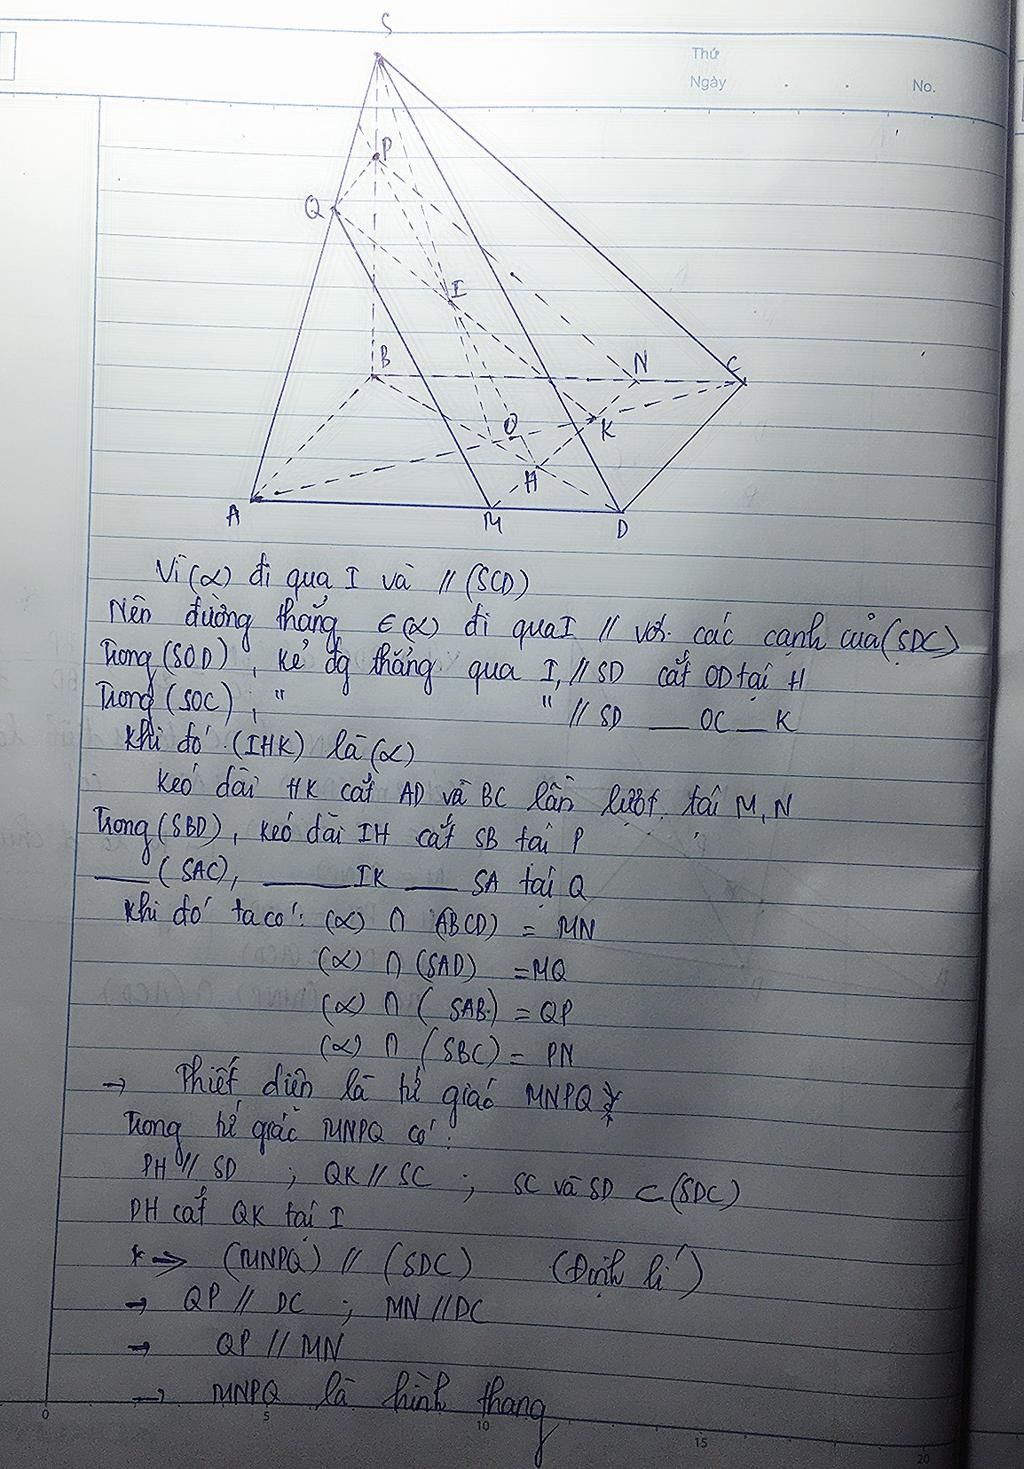 S
Thứ
Ngày . . No.
P
Q
I
B N C
O K
H
A M D
Vì (α) đi qua I và // (SCD)
Nên đường thẳng ∈ (α) đi qua I // với các cạnh của (SDC)
Trong (SOD), kẻ đg thẳng qua I, // SD cắt OD tại H
Trong (SOC), " " // SD __ OC __ K
Khi đó (IHK) là (α)
Kéo dài HK cắt AD và BC lần lượt tại M, N
Trong (SBD), kéo dài IH cắt SB tại P
__ (SAC), __ IK __ SA tại Q
Khi đó ta có: (α) ∩ (ABCD) = MN
(α) ∩ (SAD) = MQ
(α) ∩ (SAB) = QP
(α) ∩ (SBC) = PN
→ Thiết diện là tứ giác MNPQ
Trong tứ giác MNPQ có:
PH // SD ; QK // SC ; SC và SD ⊂ (SDC)
PH cắt QK tại I
* ⇒ (MNPQ) // (SDC) (Định lí)
→ QP // DC ; MN // DC
→ QP // MN
→ MNPQ là hình thang
0 5 10 15 20